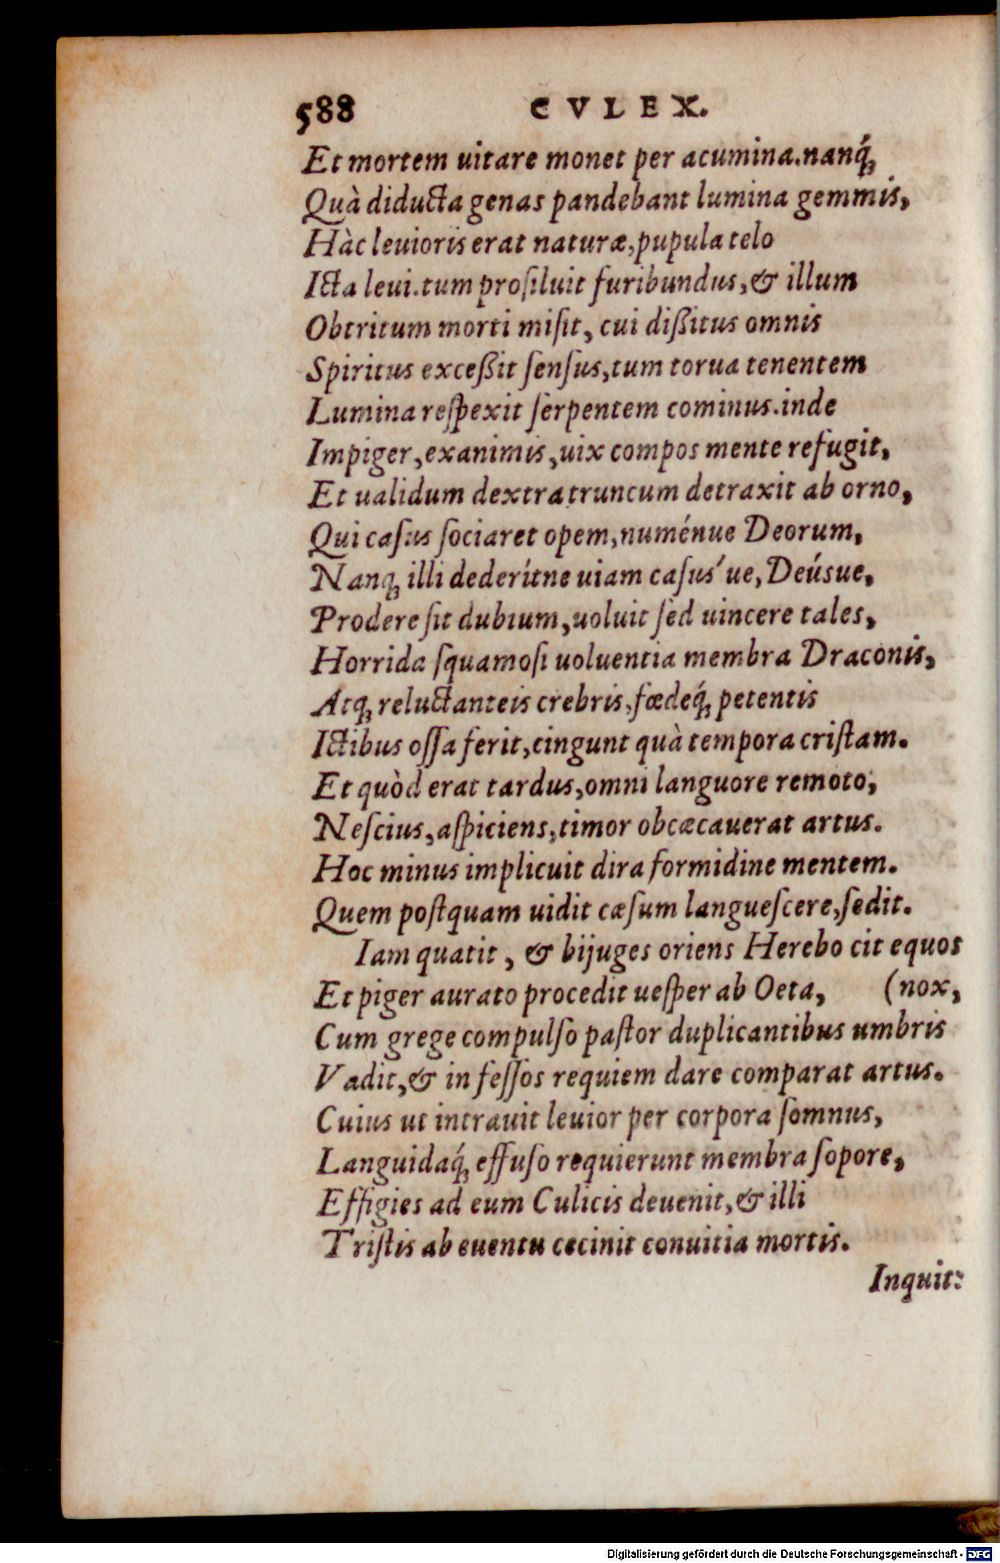 588 CVLEX.
Et mortem uitare monet per acumina. nanq́;
Quà diducta genas pandebant lumina gemmis,
Hàc leuioris erat naturæ, pupula telo
Icta leui. tum prosiluit furibundus, & illum
Obtritum morti misit, cui dißitus omnis
Spiritus exceßit sensus, tum torua tenentem
Lumina respexit serpentem cominus. inde
Impiger, exanimis, uix compos mente refugit,
Et ualidum dextra truncum detraxit ab orno,
Qui casus sociaret opem, numénue Deorum,
Nanq; illi dederítne uiam casus´ue, Deúsue,
Prodere sit dubium, uoluit sed uincere tales,
Horrida squamosi uoluentia membra Draconis,
Atq; reluctanteis crebris, fœdeq́; petentis
Ictibus ossa ferit, cingunt quà tempora cristam.
Et quòd erat tardus, omni languore remoto,
Nescius, aspiciens, timor obcæcauerat artus.
Hoc minus implicuit dira formidine mentem.
Quem postquam uidit cæsum languescere, sedit.
Iam quatit, & bijuges oriens Herebo cit equos
Et piger aurato procedit uesper ab Oeta, (nox,
Cum grege compulso pastor duplicantibus umbris
Vadit, & in fessos requiem dare comparat artus.
Cuius ut intrauit leuior per corpora somnus,
Languidaq́; effuso requierunt membra sopore,
Effigies ad eum Culicis deuenit, & illi
Tristis ab euentu cecinit conuitia mortis.
Inquit:
Digitalisierung gefördert durch die Deutsche Forschungsgemeinschaft - DFG